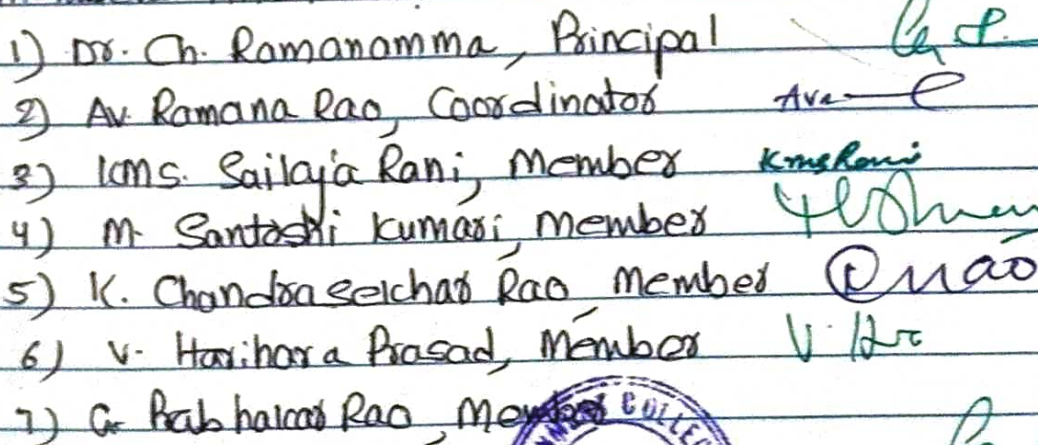 1) Dr. Ch. Ramanamma, Principal
2) Av. Ramana Rao, Coordinator Ava
3) kms. Sailaja Rani, Member KmsRani
4) M. Santoshi Kumari, Member
5) K. Chandrasekhar Rao Member
6) V. Harihara Prasad, Member V.
7) G. Prabhakar Rao, Member COLLE